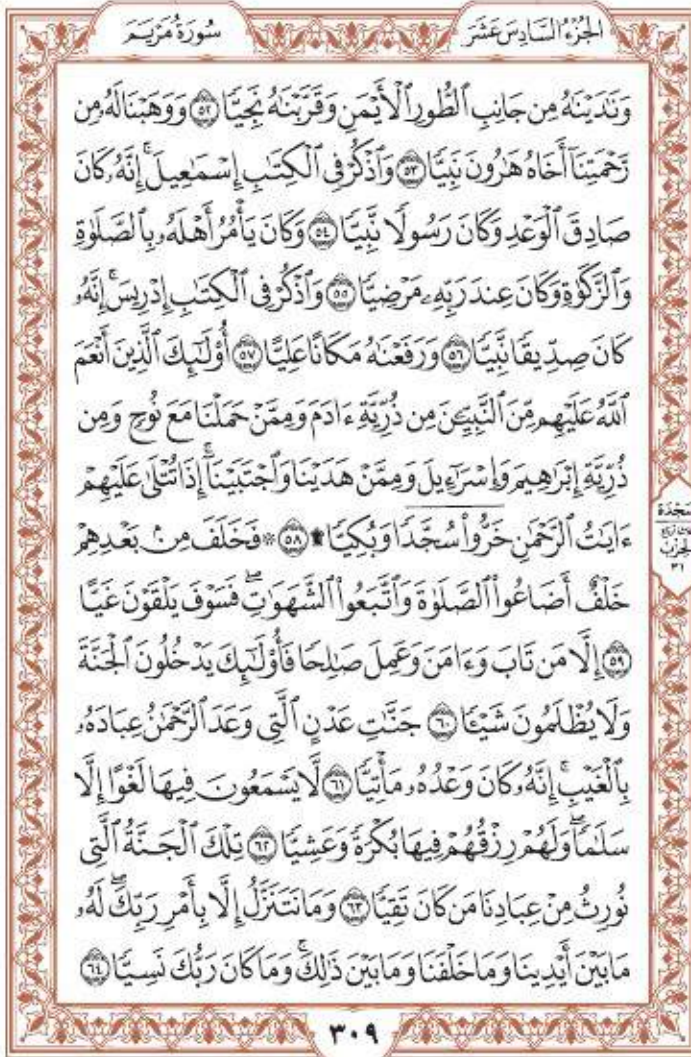 الجُزْءُ السَّادِسَ عَشَرَ
سُورَةُ مَرْيَمَ
وَنَٰدَيْنَٰهُ مِن جَانِبِ ٱلطُّورِ ٱلْأَيْمَنِ وَقَرَّبْنَٰهُ نَجِيًّا ٥٢ وَوَهَبْنَا لَهُۥ مِن
رَّحْمَتِنَآ أَخَاهُ هَٰرُونَ نَبِيًّا ٥٣ وَٱذْكُرْ فِى ٱلْكِتَٰبِ إِسْمَٰعِيلَ ۚ إِنَّهُۥ كَانَ
صَادِقَ ٱلْوَعْدِ وَكَانَ رَسُولًا نَّبِيًّا ٥٤ وَكَانَ يَأْمُرُ أَهْلَهُۥ بِٱلصَّلَوٰةِ
وَٱلزَّكَوٰةِ وَكَانَ عِندَ رَبِّهِۦ مَرْضِيًّا ٥٥ وَٱذْكُرْ فِى ٱلْكِتَٰبِ إِدْرِيسَ ۚ إِنَّهُۥ
كَانَ صِدِّيقًا نَّبِيًّا ٥٦ وَرَفَعْنَٰهُ مَكَانًا عَلِيًّا ٥٧ أُو۟لَٰٓئِكَ ٱلَّذِينَ أَنْعَمَ
ٱللَّهُ عَلَيْهِم مِّنَ ٱلنَّبِيِّـۧنَ مِن ذُرِّيَّةِ ءَادَمَ وَمِمَّنْ حَمَلْنَا مَعَ نُوحٍ وَمِن
ذُرِّيَّةِ إِبْرَٰهِيمَ وَإِسْرَٰٓءِيلَ وَمِمَّنْ هَدَيْنَا وَٱجْتَبَيْنَآ ۚ إِذَا تُتْلَىٰ عَلَيْهِمْ
ءَايَٰتُ ٱلرَّحْمَٰنِ خَرُّوا۟ سُجَّدًا وَبُكِيًّا ۩ ٥٨ ۞ فَخَلَفَ مِنۢ بَعْدِهِمْ
خَلْفٌ أَضَاعُوا۟ ٱلصَّلَوٰةَ وَٱتَّبَعُوا۟ ٱلشَّهَوَٰتِ ۖ فَسَوْفَ يَلْقَوْنَ غَيًّا
٥٩ إِلَّا مَن تَابَ وَءَامَنَ وَعَمِلَ صَٰلِحًا فَأُو۟لَٰٓئِكَ يَدْخُلُونَ ٱلْجَنَّةَ
وَلَا يُظْلَمُونَ شَيْـًٔا ٦٠ جَنَّٰتِ عَدْنٍ ٱلَّتِى وَعَدَ ٱلرَّحْمَٰنُ عِبَادَهُۥ
بِٱلْغَيْبِ ۚ إِنَّهُۥ كَانَ وَعْدُهُۥ مَأْتِيًّا ٦١ لَّا يَسْمَعُونَ فِيهَا لَغْوًا إِلَّا
سَلَٰمًا ۖ وَلَهُمْ رِزْقُهُمْ فِيهَا بُكْرَةً وَعَشِيًّا ٦٢ تِلْكَ ٱلْجَنَّةُ ٱلَّتِى
نُورِثُ مِنْ عِبَادِنَا مَن كَانَ تَقِيًّا ٦٣ وَمَا نَتَنَزَّلُ إِلَّا بِأَمْرِ رَبِّكَ ۖ لَهُۥ
مَا بَيْنَ أَيْدِينَا وَمَا خَلْفَنَا وَمَا بَيْنَ ذَٰلِكَ ۚ وَمَا كَانَ رَبُّكَ نَسِيًّا ٦٤
سَجْدَة
الحزب
٣١
٣٠٩